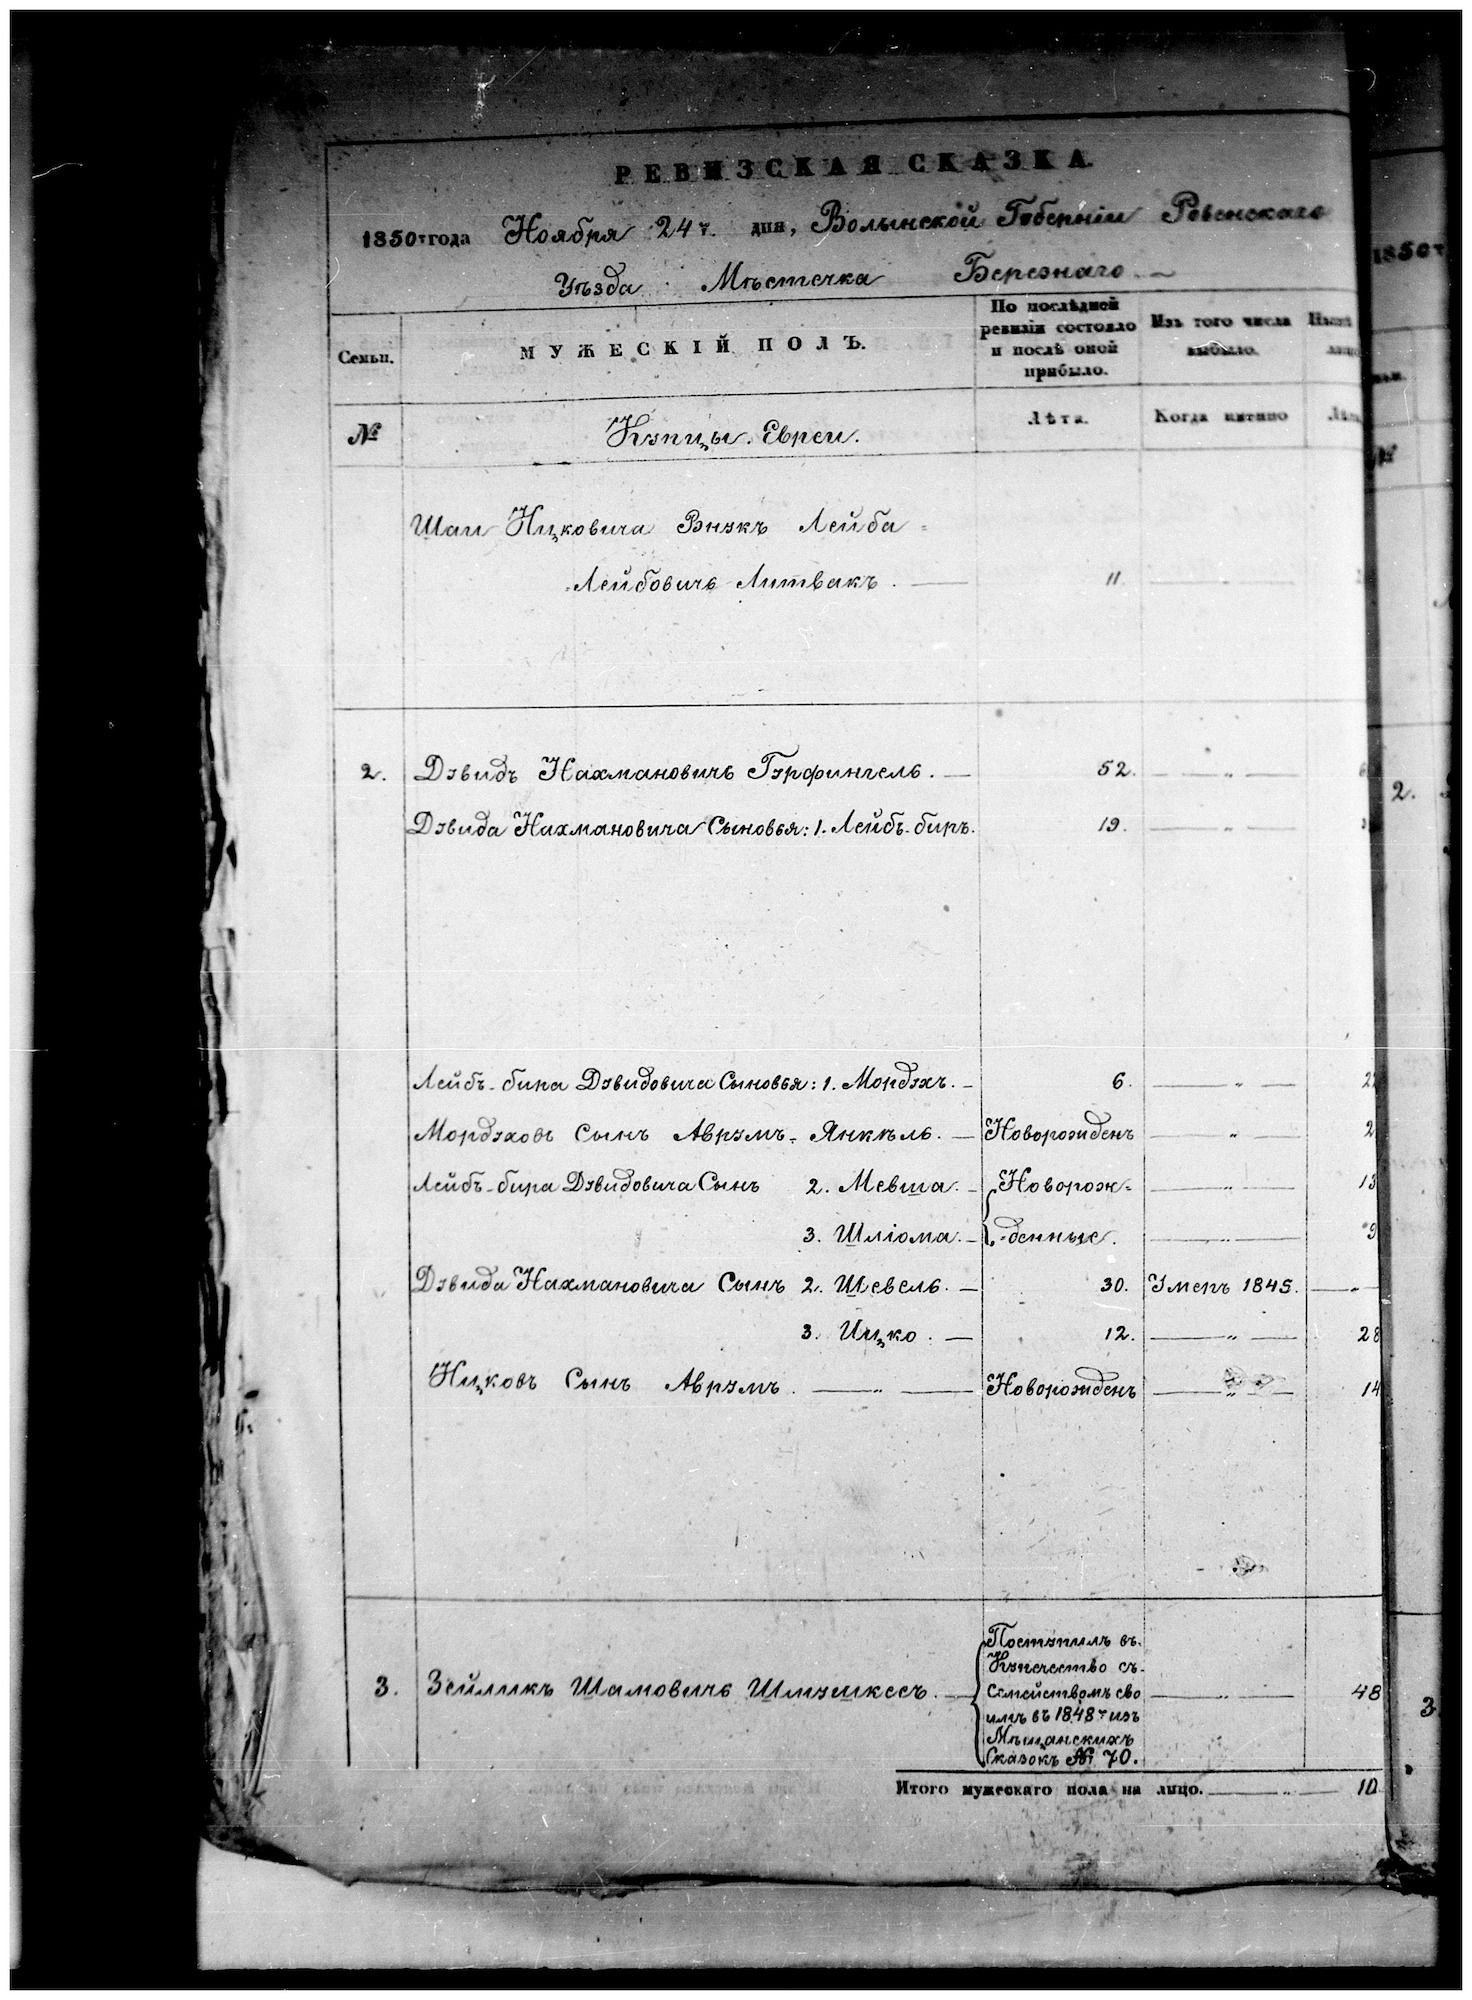 РЕВИЗСКАЯ СКАЗКА.
1850 г. года Ноября 24 г. дня, Волынской Губернiи Ровенскаго
Уѣзда Мѣстечка Березнаго
Семьи.
МУЖЕСКIЙ ПОЛЪ.
По послѣдней ревизiи состояло и послѣ оной прибыло.
Изъ того числа выбыло.
№
Купцы. Евреи.
Лѣта.
Когда именно
Шаи Ицковича Внукъ Лейба
Лейбовичъ Литвакъ. 11.
2. Дувидъ Нахмановичъ Гурфинкель. 52. „
Дувида Нахмановича Сыновья: 1. Лейбъ-биръ. 19. „
Лейбъ-бира Дувидовича Сыновья: 1. Мордухъ. 6. „
Мордуховъ Сынъ Аврумъ-Янкѣль. Новорожденъ „
Лейбъ-бира Дувидовича Сынъ 2. Мевша. Новорож- „ 13
3. Шлiома. -денные. „ 9
Дувида Нахмановича Сынъ 2. Шевель. 30. Умеръ 1845. „
3. Ицко. 12. „ 28
Ицковъ Сынъ Аврумъ. „ Новорожденъ „ 14
3. Зейликъ Шамовичъ Шмушкесъ. 48
Поступилъ въ
Купечество съ
Семействомъ сво
имъ въ 1848 г. изъ
Мѣщанскихъ
Сказокъ № 70.
Итого мужескаго пола на лицо. „ 10
1850 г
№
2.
3